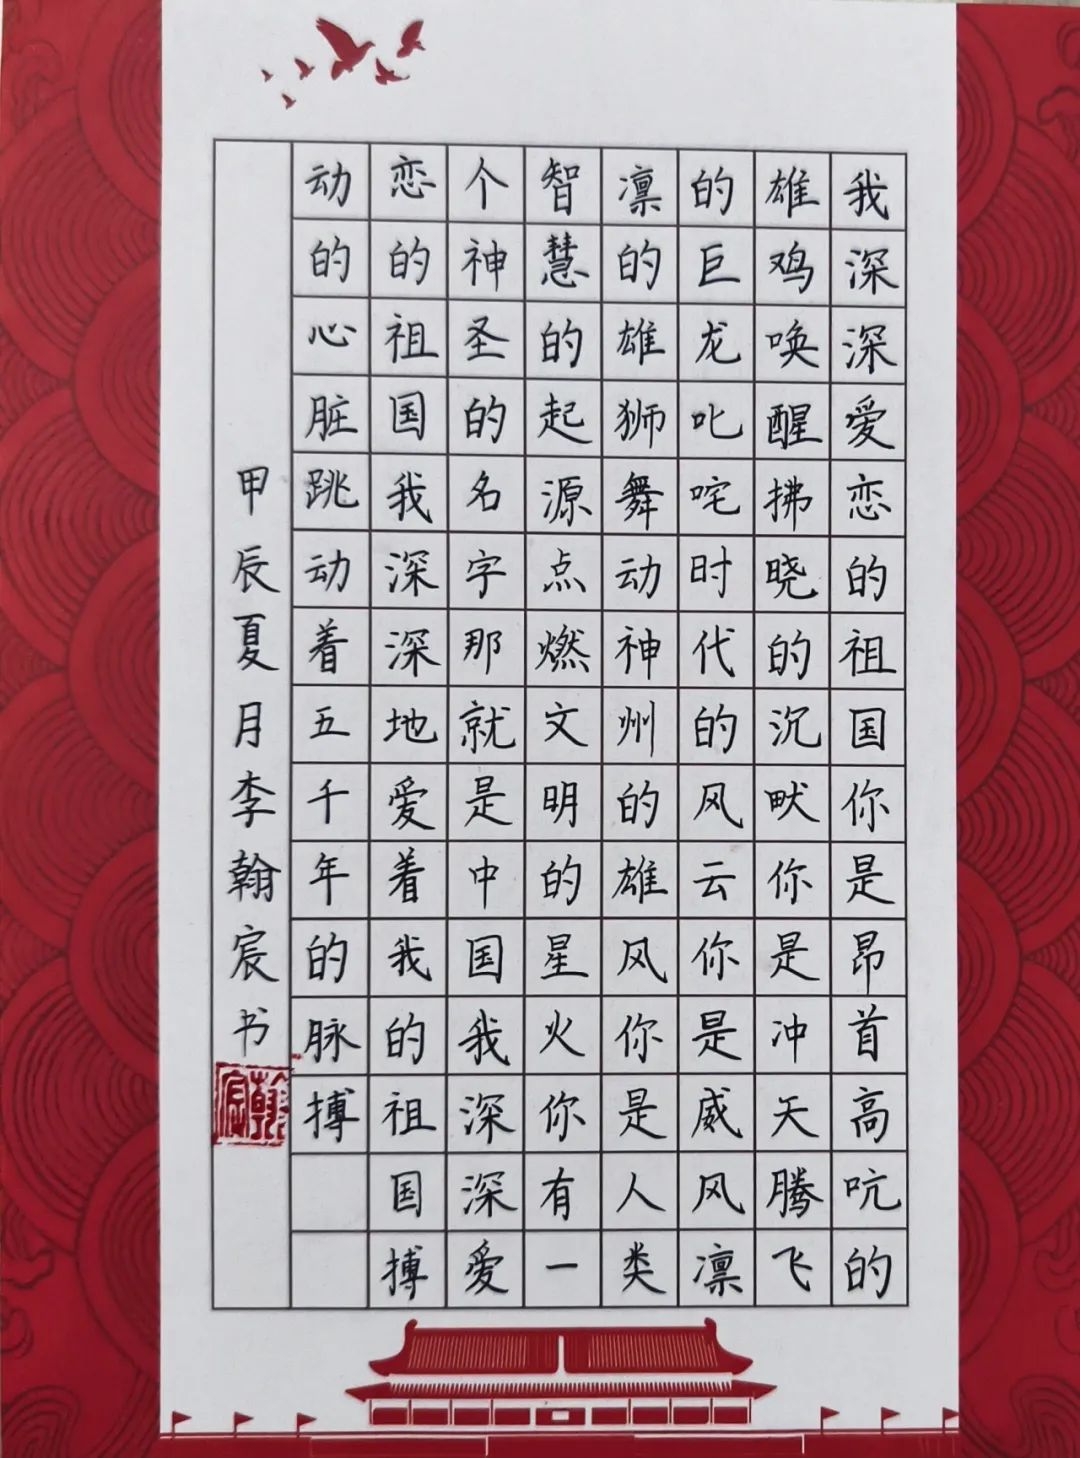 我深深爱恋的祖国你是昂首高吭的
雄鸡唤醒拂晓的沉畎你是冲天腾飞
的巨龙叱咤时代的风云你是威风凛
凛的雄狮舞动神州的雄风你是人类
智慧的起源点燃文明的星火你有一
个神圣的名字那就是中国我深深爱
恋的祖国我深深地爱着我的祖国搏
动的心脏跳动着五千年的脉搏
甲辰夏月李翰宸书
翰宸